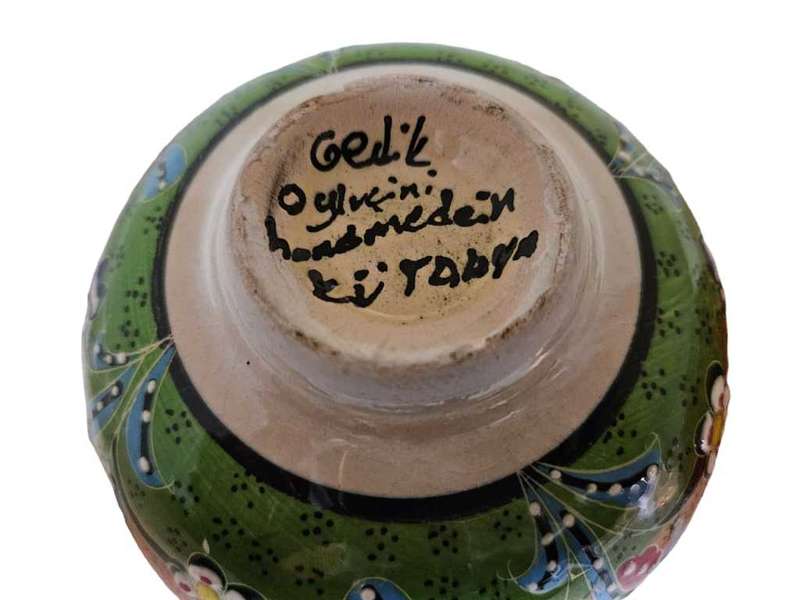 Gedik
handmade in
KÜTAhya